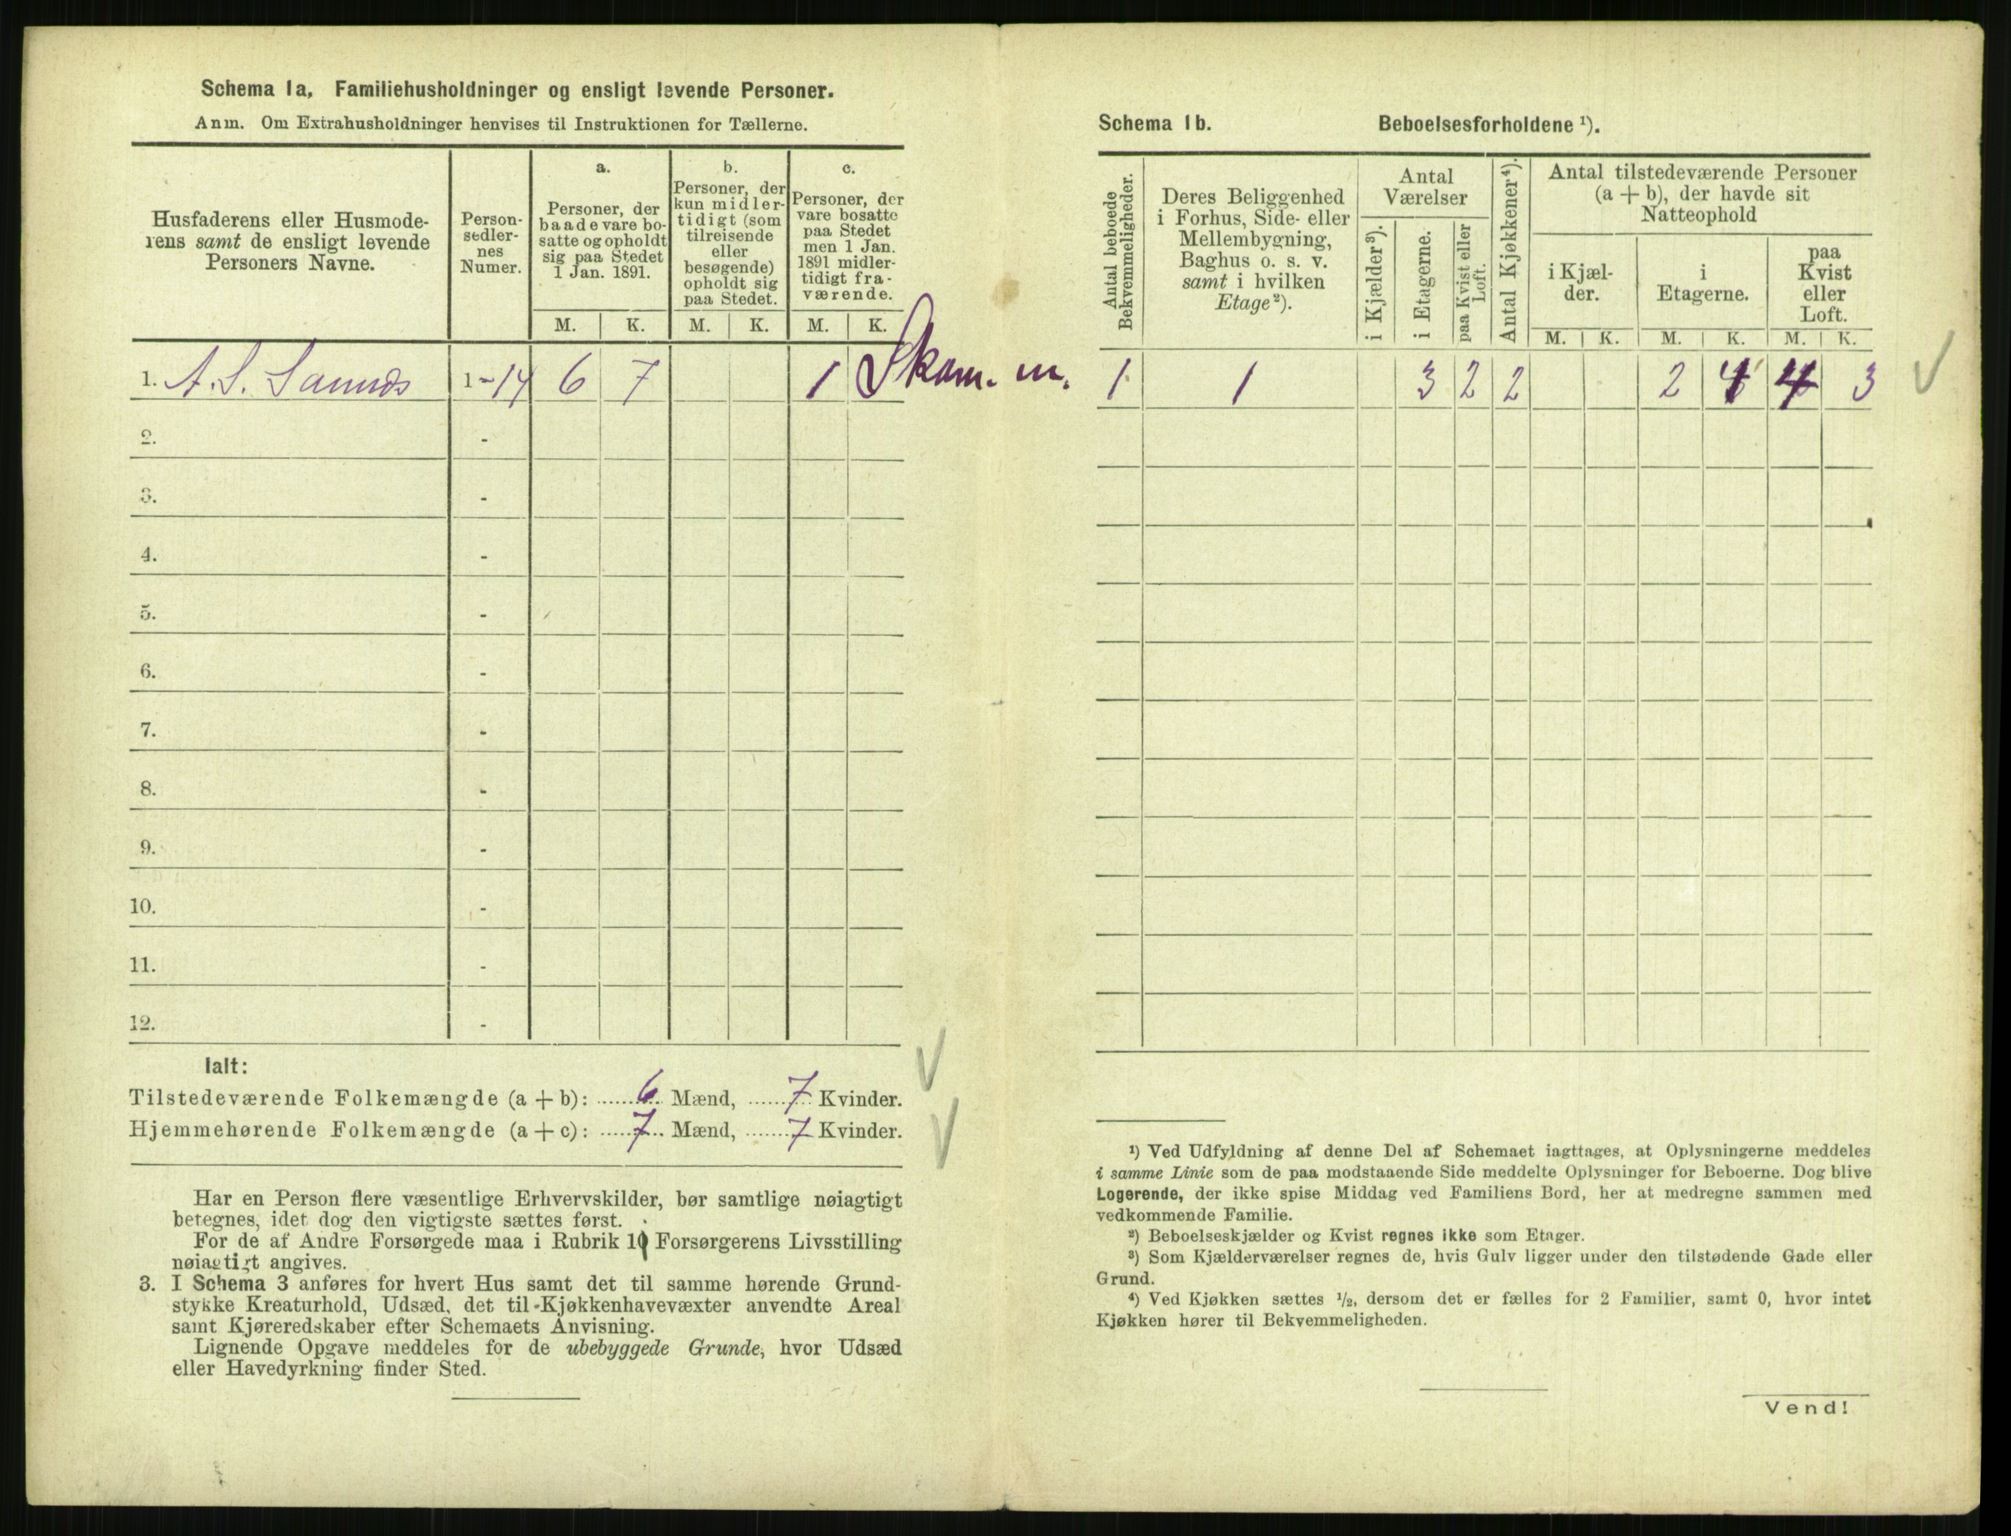 Schema 1a. Familiehusholdninger og ensligt levende Personer.
Anm. Om Extrahusholdninger henvises til Instruktionen for Tællerne.
Husfaderens eller Husmode-
rens samt de ensligt levende
Personers Navne.
Person-
sedler-
nes
Numer.
a.
Personer, der
baade vare bo-
satte og opholdt
sig paa Stedet
1 Jan. 1891.
b.
Personer, der
kun midler-
tidigt (som
tilreisende
eller
besøgende)
opholdt sig
paa Stedet.
c.
Personer, der
vare bosatte
paa Stedet
men 1 Jan.
1891 midler-
tidigt fra-
værende.
M. K. M. K. M. K.
1. A. S. 1 - 14 6 7 1 Skom. m.
2. -
3. -
4. -
5. -
6. -
7. -
8. -
9. -
10. -
11. -
12. -
Ialt:
Tilstedeværende Folkemængde (a + b): 6 Mænd, 7 Kvinder.
Hjemmehørende Folkemængde (a + c): 7 Mænd, 7 Kvinder.
Har en Person flere væsentlige Erhvervskilder, bør samtlige nøiagtigt
betegnes, idet dog den vigtigste sættes først.
For de af Andre Forsørgede maa i Rubrik 10 Forsørgerens Livsstilling
nøiagtigt angives.
3. I Schema 3 anføres for hvert Hus samt det til samme hørende Grund-
stykke Kreaturhold, Udsæd, det til Kjøkkenhavevæxter anvendte Areal
samt Kjøreredskaber efter Schemaets Anvisning.
Lignende Opgave meddeles for de ubebyggede Grunde, hvor Udsæd
eller Havedyrkning finder Sted.
Schema 1b. Beboelsesforholdene ¹).
Antal beboede
Bekvemmeligheder.
Deres Beliggenhed
i Forhus, Side- eller
Mellembygning,
Baghus o. s. v.
samt i hvilken
Etage²).
Antal
Værelser
i Kjælder³).
i Etagerne.
paa Kvist eller
Loft.
Antal Kjøkkener⁴).
Antal tilstedeværende Personer
(a + b), der havde sit
Natteophold
i Kjæl-
der.
i
Etagerne.
paa
Kvist
eller
Loft.
M. K. M. K. M. K.
1 1 3 2 2 2 4 4 3
¹) Ved Udfyldning af denne Del af Schemaet iagttages, at Oplysningerne meddeles
i samme Linie som de paa modstaaende Side meddelte Oplysninger for Beboerne. Dog blive
Logerende, der ikke spise Middag ved Familiens Bord, her at medregne sammen med
vedkommende Familie.
²) Beboelseskjælder og Kvist regnes ikke som Etager.
³) Som Kjælderværelser regnes de, hvis Gulv ligger under den tilstødende Gade eller
Grund.
⁴) Ved Kjøkken sættes ½, dersom det er fælles for 2 Familier, samt 0, hvor intet
Kjøkken hører til Bekvemmeligheden.
Vend!